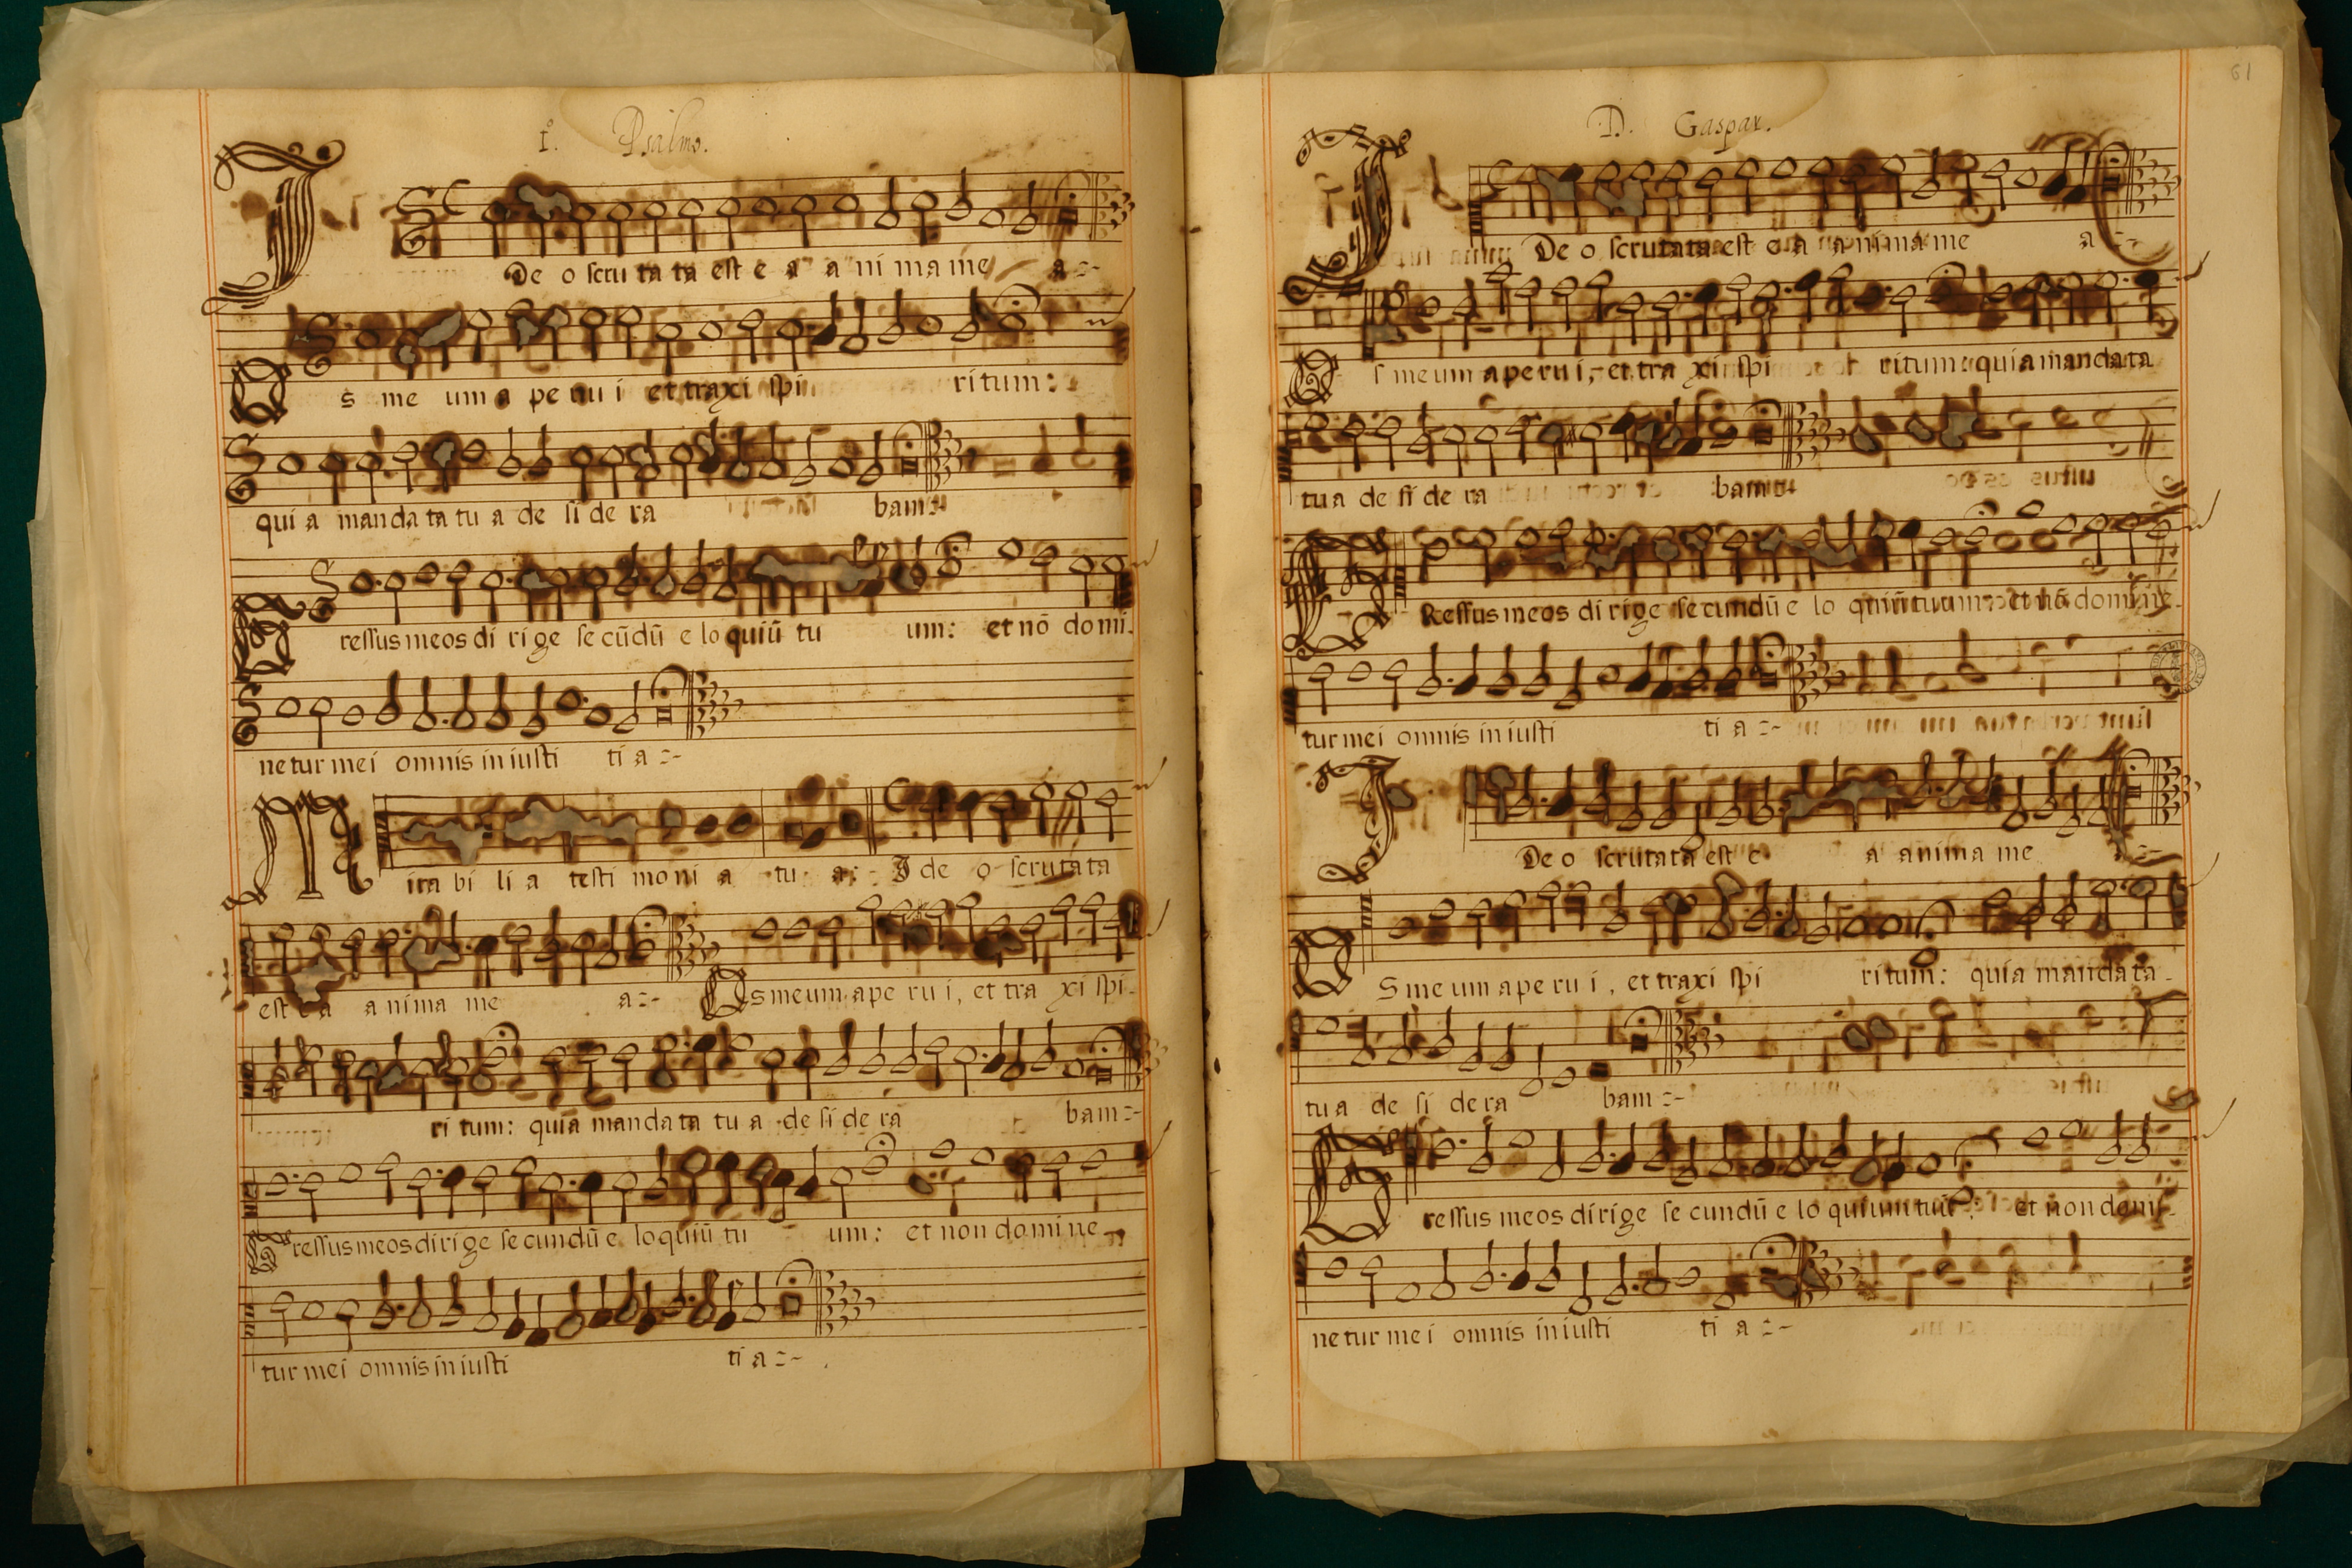 1. Psalmo.
Ideo scrutata est ea anima mea
Os meum aperui et traxi spiritum:
quia mandata tua desidera bam
Gressus meos dirige secūdū eloquiū tuum: et nō domi.
netur mei omnis iniustitia
Mirabilia testimonia tua: Ideo scrutata
est ea anima mea Os meum aperui, et traxi spi.
ritum: quia mandata tua desidera bam
Gressus meos dirige secundū eloquiū tuum: et non domine
tur mei omnis iniusti tia
61
D. Gaspar.
Ideo scrutata est ea anima mea
Os meum aperui, et traxi spiritum: quia mandata
tua desidera bam
Gressus meos dirige secundū eloquiū tuum: et nō domine.
tur mei omnis iniusti tia
Ideo scrutata est ea anima mea
Os meum aperui, et traxi spiritum: quia mandata.
tua desidera bam
Gressus meos dirige secundū eloquium tuū: et non domi.
netur mei omnis iniusti tia